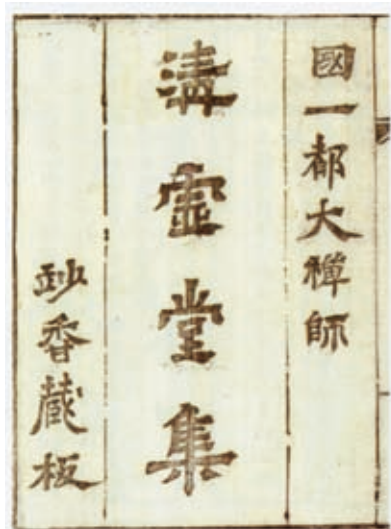 國一都大禪師
淸虛堂集
妙香藏板